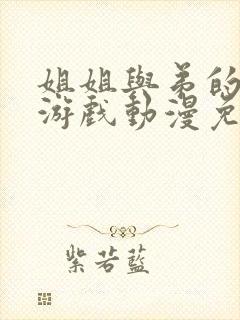 姐姐與弟的
游戏動漫免
紫若藍